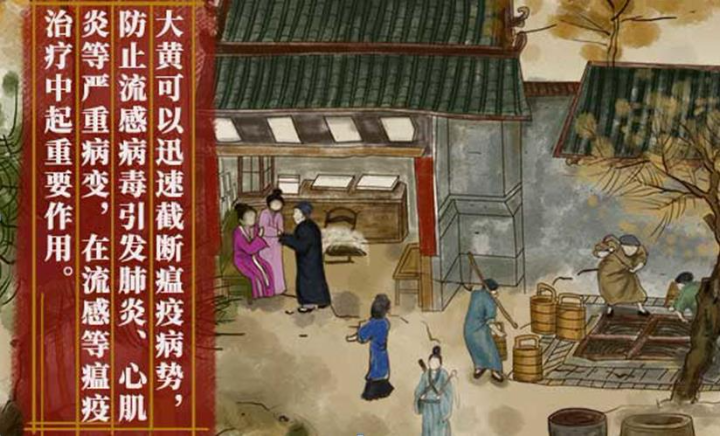 大黄可以迅速截断瘟疫病势，
防止流感病毒引发肺炎、心肌
炎等严重病变，在流感等瘟疫
治疗中起重要作用。